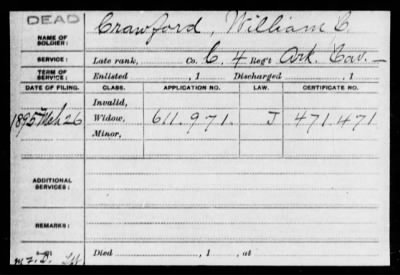 DEAD
NAME OF SOLDIER: Crawford, William C.
SERVICE: Late rank, Co. C, 4 Reg't Ark. Cav.
TERM OF SERVICE: Enlisted , 1 Discharged , 1
DATE OF FILING. CLASS. APPLICATION NO. LAW. CERTIFICATE NO.
Invalid,
1895 Mch 26 Widow, 611.971. J 471.471
Minor,
ADDITIONAL SERVICES:
REMARKS:
Died , 1 , at